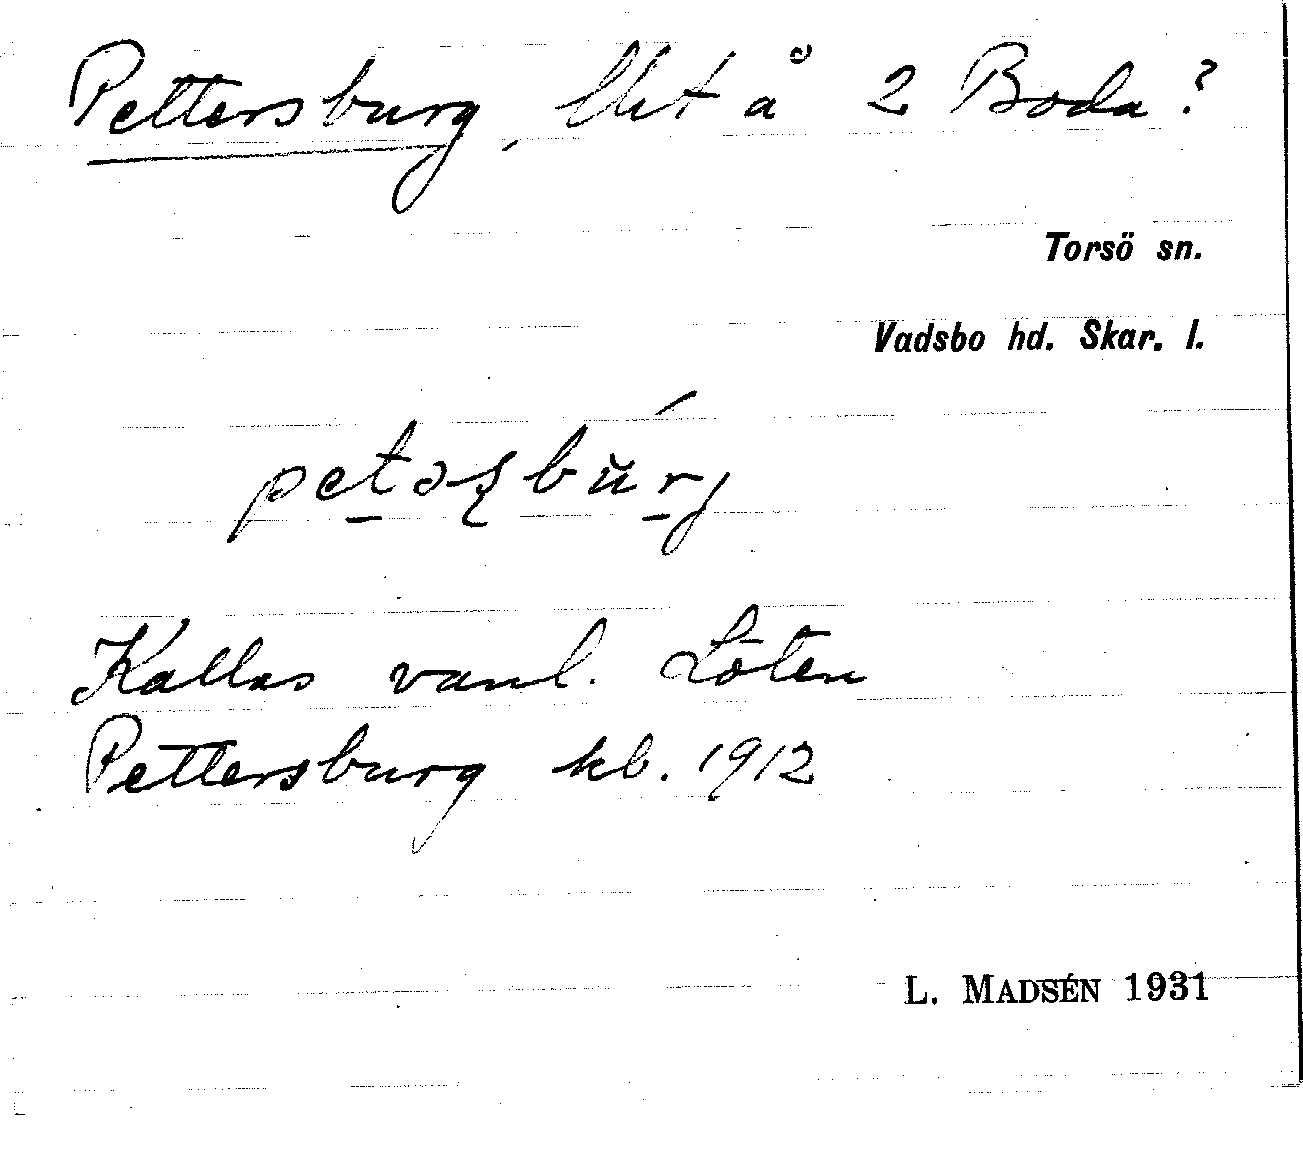 Pettersburg, lht å 2 Boda?
Torsö sn.
Vadsbo hd. Skar. l.
Kallas vanl. Löten
Pettersburg kb. 1912
L. MADSÉN 1931